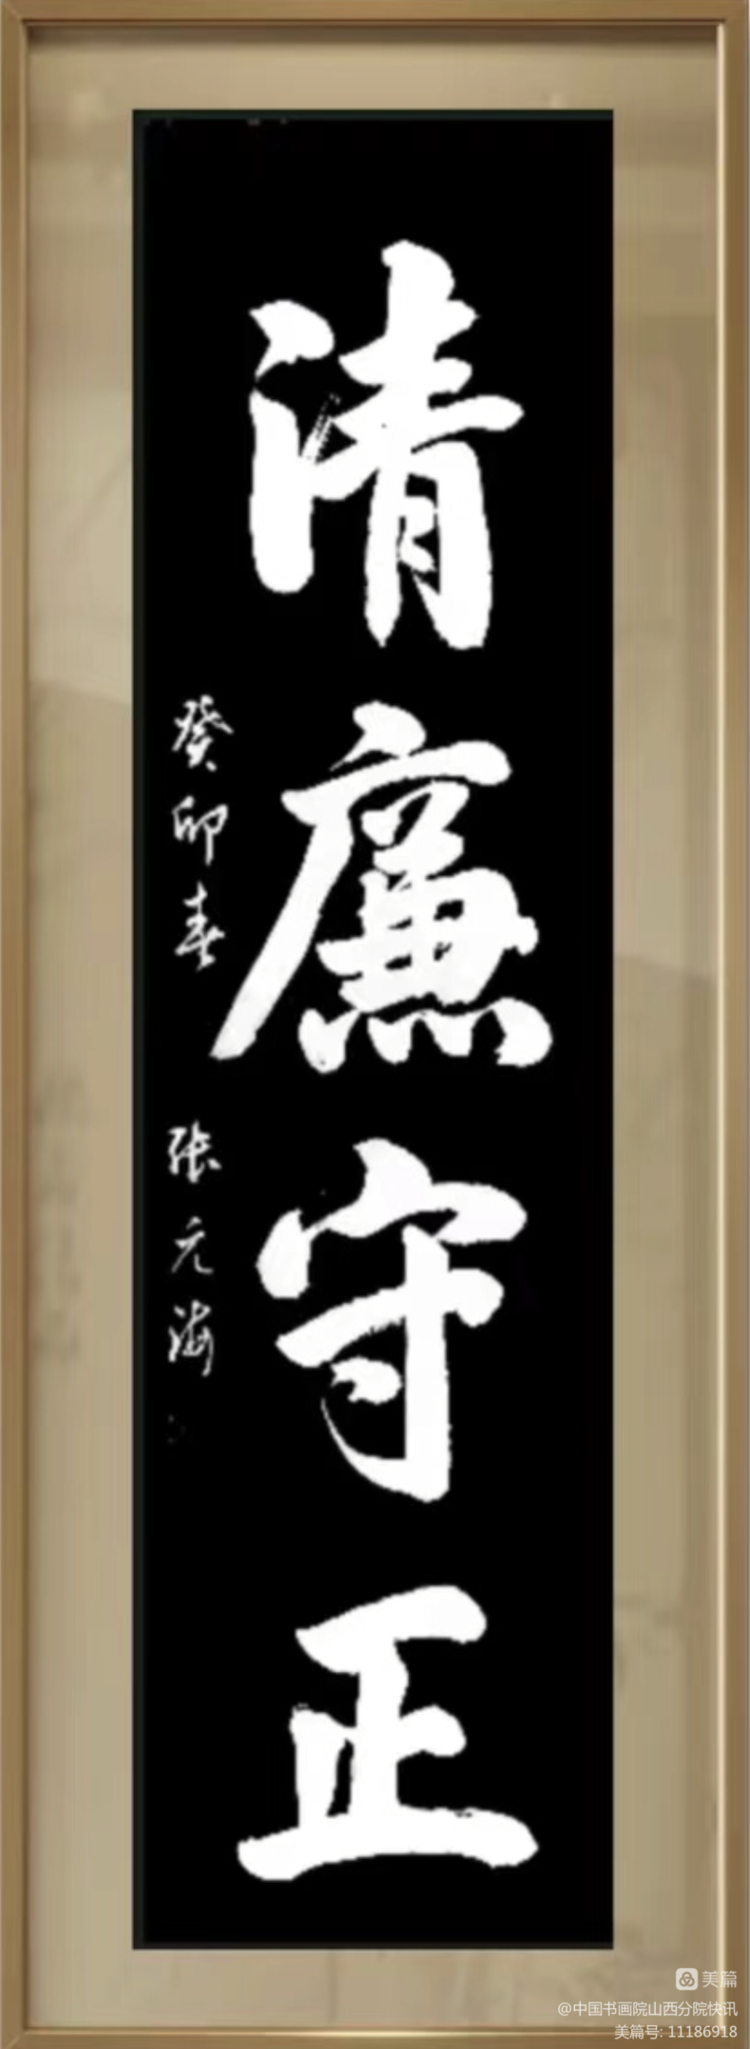 清廉守正
癸卯春 张元海
美篇
@中国书画院山西分院快讯
美篇号: 11186918